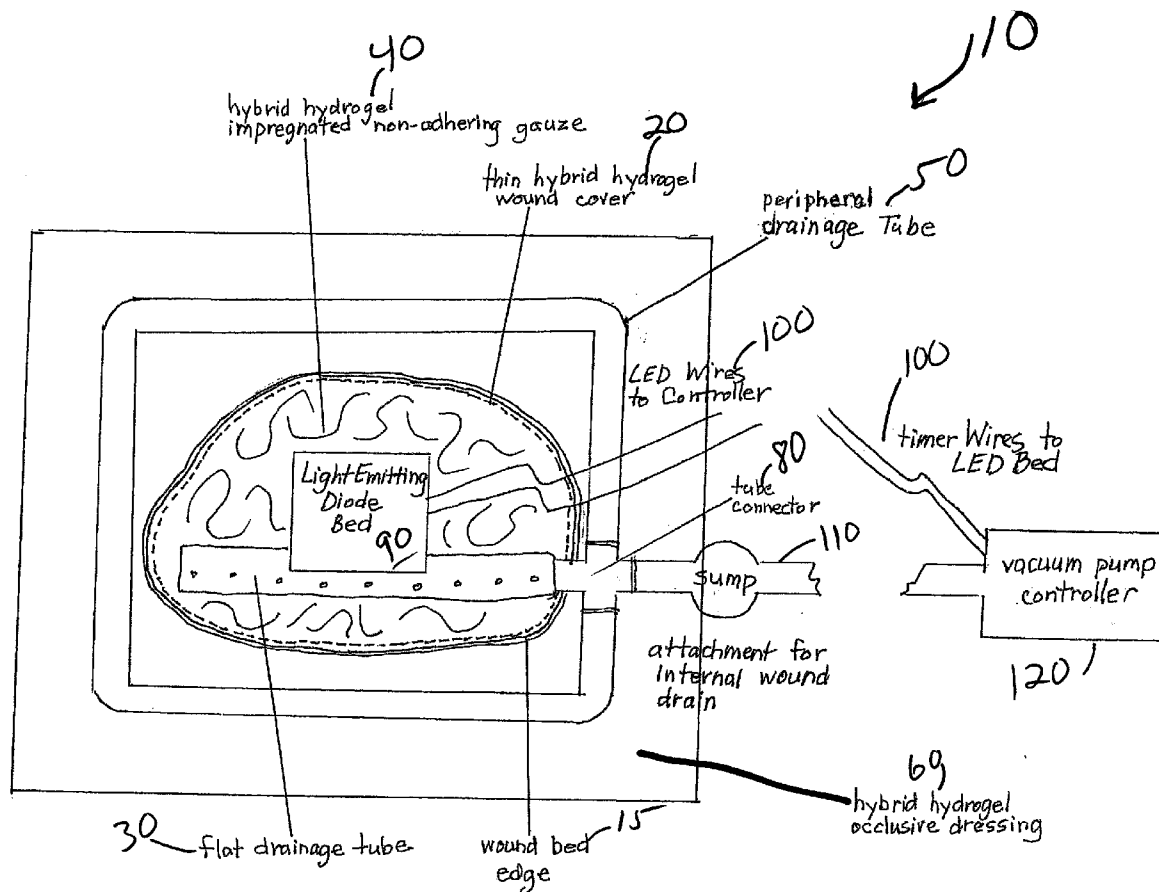 110
40
hybrid hydrogel
impregnated non-adhering gauze
20
thin hybrid hydrogel
wound cover
50
peripheral
drainage Tube
100
LED Wires
to Controller
100
timer Wires to
LED Bed
80
tube
connector
110
Light Emitting
Diode
Bed
90
sump
vacuum pump
controller
120
attachment for
Internal wound
drain
60
hybrid hydrogel
occlusive dressing
30
flat drainage tube
wound bed
edge
15